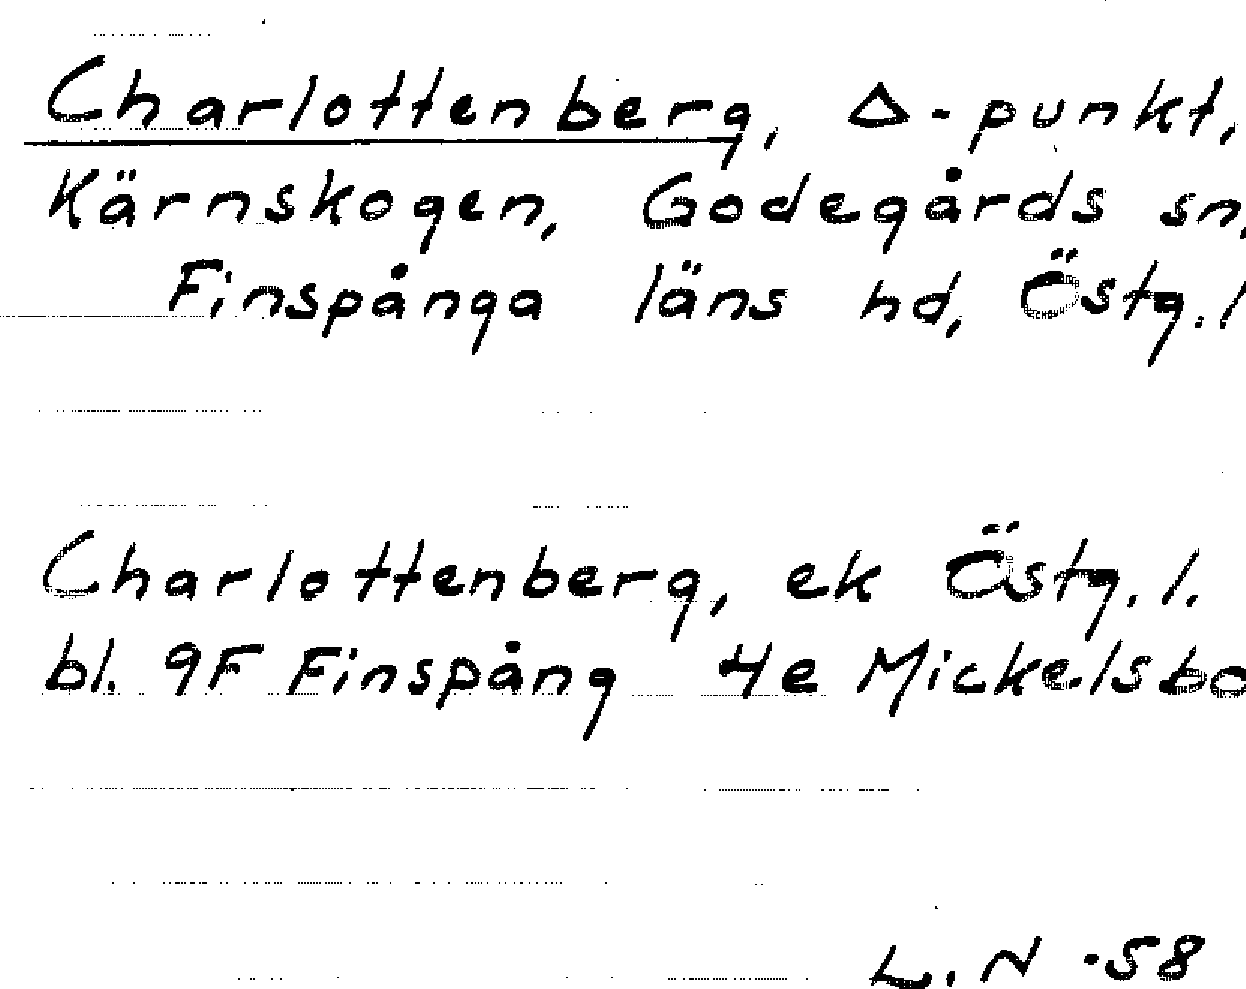 Charlottenberg, Δ-punkt,
Kärnskogen, Godegårds sn,
Finspånga läns hd, Östg. l
Charlottenberg, ek Östg. l.
bl. 9F Finspång 4e Mickelsbo
L. N -58